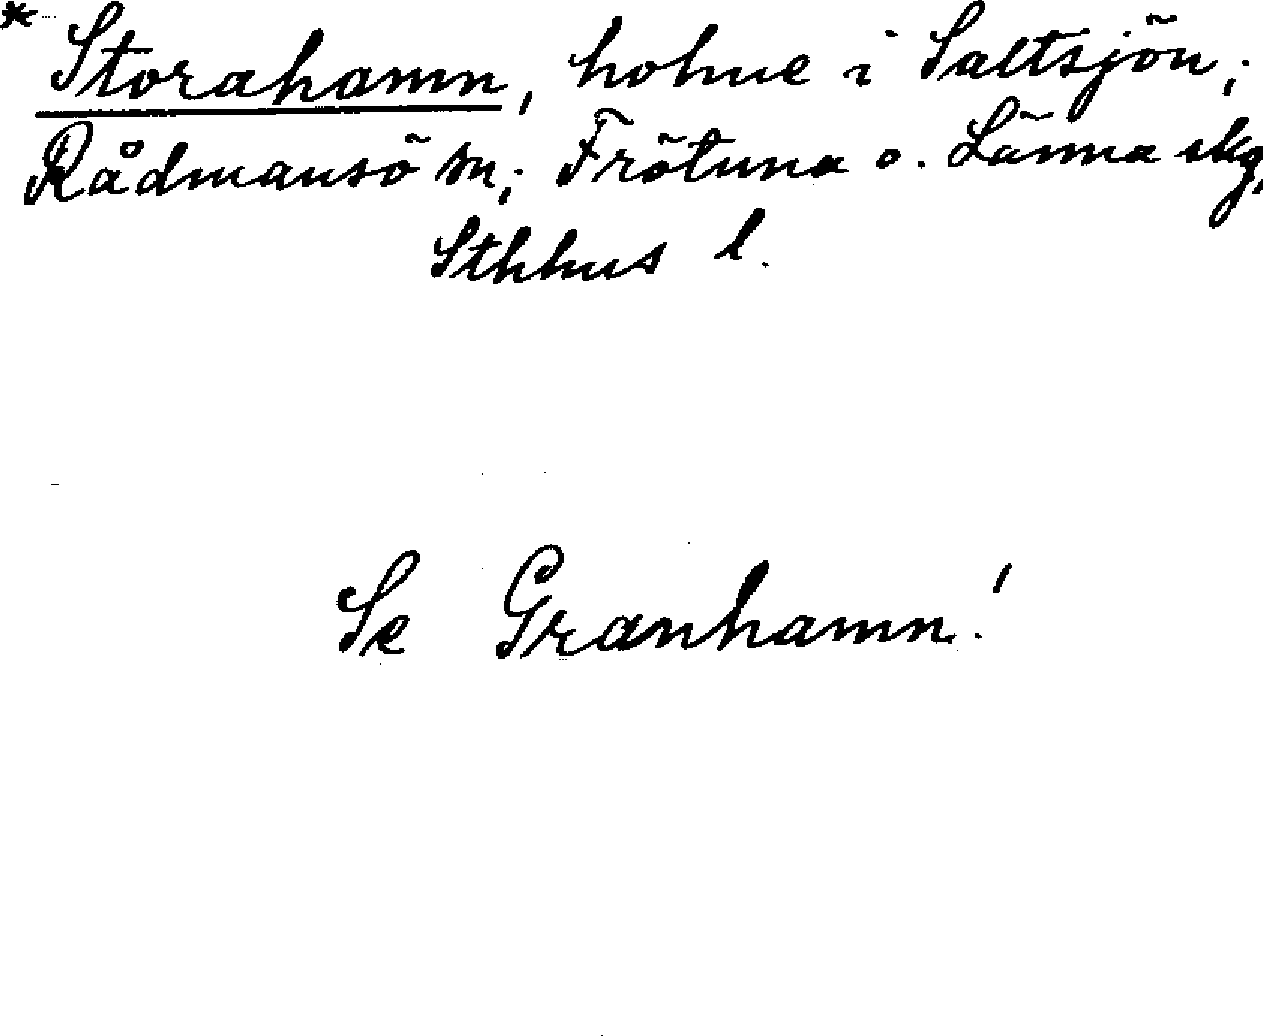 * Storahamn, holme i Saltsjön;
Rådmansö sn; Frötuna o. Länna skg,
Sthlms l.
Se Granhamn!